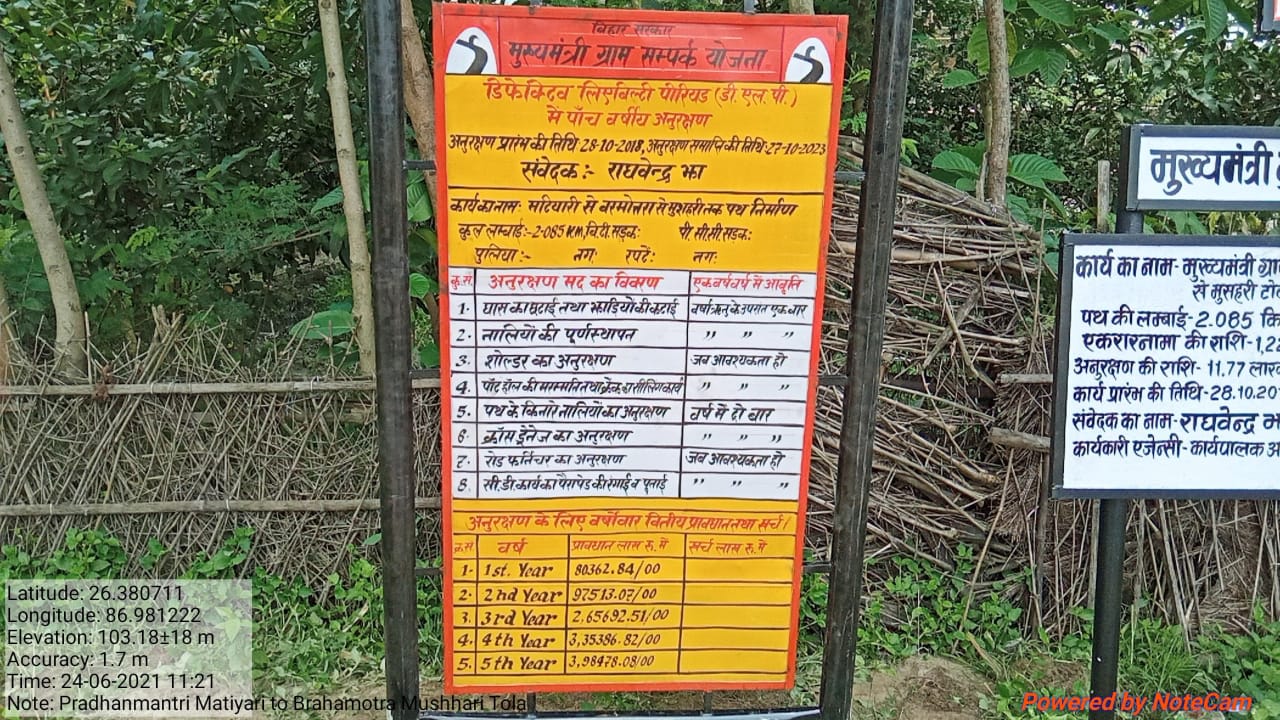 बिहार सरकार
मुख्यमंत्री ग्राम सम्पर्क योजना
डिफेक्टिव लिएबिल्टी पीरियड (डी.एल.पी.)
में पाँच वर्षीय अनुरक्षण
अनुरक्षण प्रारंभ की तिथि 28-10-2018, अनुरक्षण समाप्ति की तिथि:-27-10-2023
संवेदक:- राघवेन्द्र झा
कार्य का नाम: मटियारी से बरमोत्तरा से मुशहरी तक पथ निर्माण
कुल लम्बाई:-2.085 KM, बि.टी. सड़क: पी. सी.सी सड़क:
पुलिया:- नग: रपटें: नग:
क्र.सं. अनुरक्षण मद का विवरण एक वर्ष वर्ष में आवृति
1. घास का छटाई तथा झाड़ियों की कटाई वर्षा ऋतु के उपरांत एक बार
2. नालियों की पूर्णस्थापन " " "
3. शोल्डर का अनुरक्षण जब आवश्यकता हो
4. पॉट हॉल की मरम्मति तथा क्रेक का सीलिंग कार्य " " "
5. पथ के किनारे नालियों का अनुरक्षण वर्ष में दो बार
6. क्रॉस ड्रैनेज का अनुरक्षण " " "
7. रोड फर्निचर का अनुरक्षण जब आवश्यकता हो
8. सी.डी. कार्य का पैरापेड की रंगाई व पुताई " " "
अनुरक्षण के लिए वर्षोवार वितीय प्रावधान तथा खर्च।
क्र.सं. वर्ष प्रावधान लाख रु. में खर्च लाख रु. में
1. 1st. Year 80362.84/00
2. 2nd Year 97513.07/00
3. 3rd Year 2,65692.51/00
4. 4th Year 3,35386.82/00
5. 5th Year 3,98478.08/00
मुख्यमंत्री
कार्य का नाम- मुख्यमंत्री ग्रा
से मुसहरी टो
पथ की लम्बाई- 2.085 कि
एकरारनामा की राशि-1,22
अनुरक्षण की राशि- 11.77 लाख
कार्य प्रारंभ की तिथि-28.10.20
संवेदक का नाम- राघवेन्द्र झ
कार्यकारी एजेन्सी- कार्यपालक अ
Latitude: 26.380711
Longitude: 86.981222
Elevation: 103.18±18 m
Accuracy: 1.7 m
Time: 24-06-2021 11:21
Note: Pradhanmantri Matiyari to Brahamotra Mushhari Tola
Powered by NoteCam